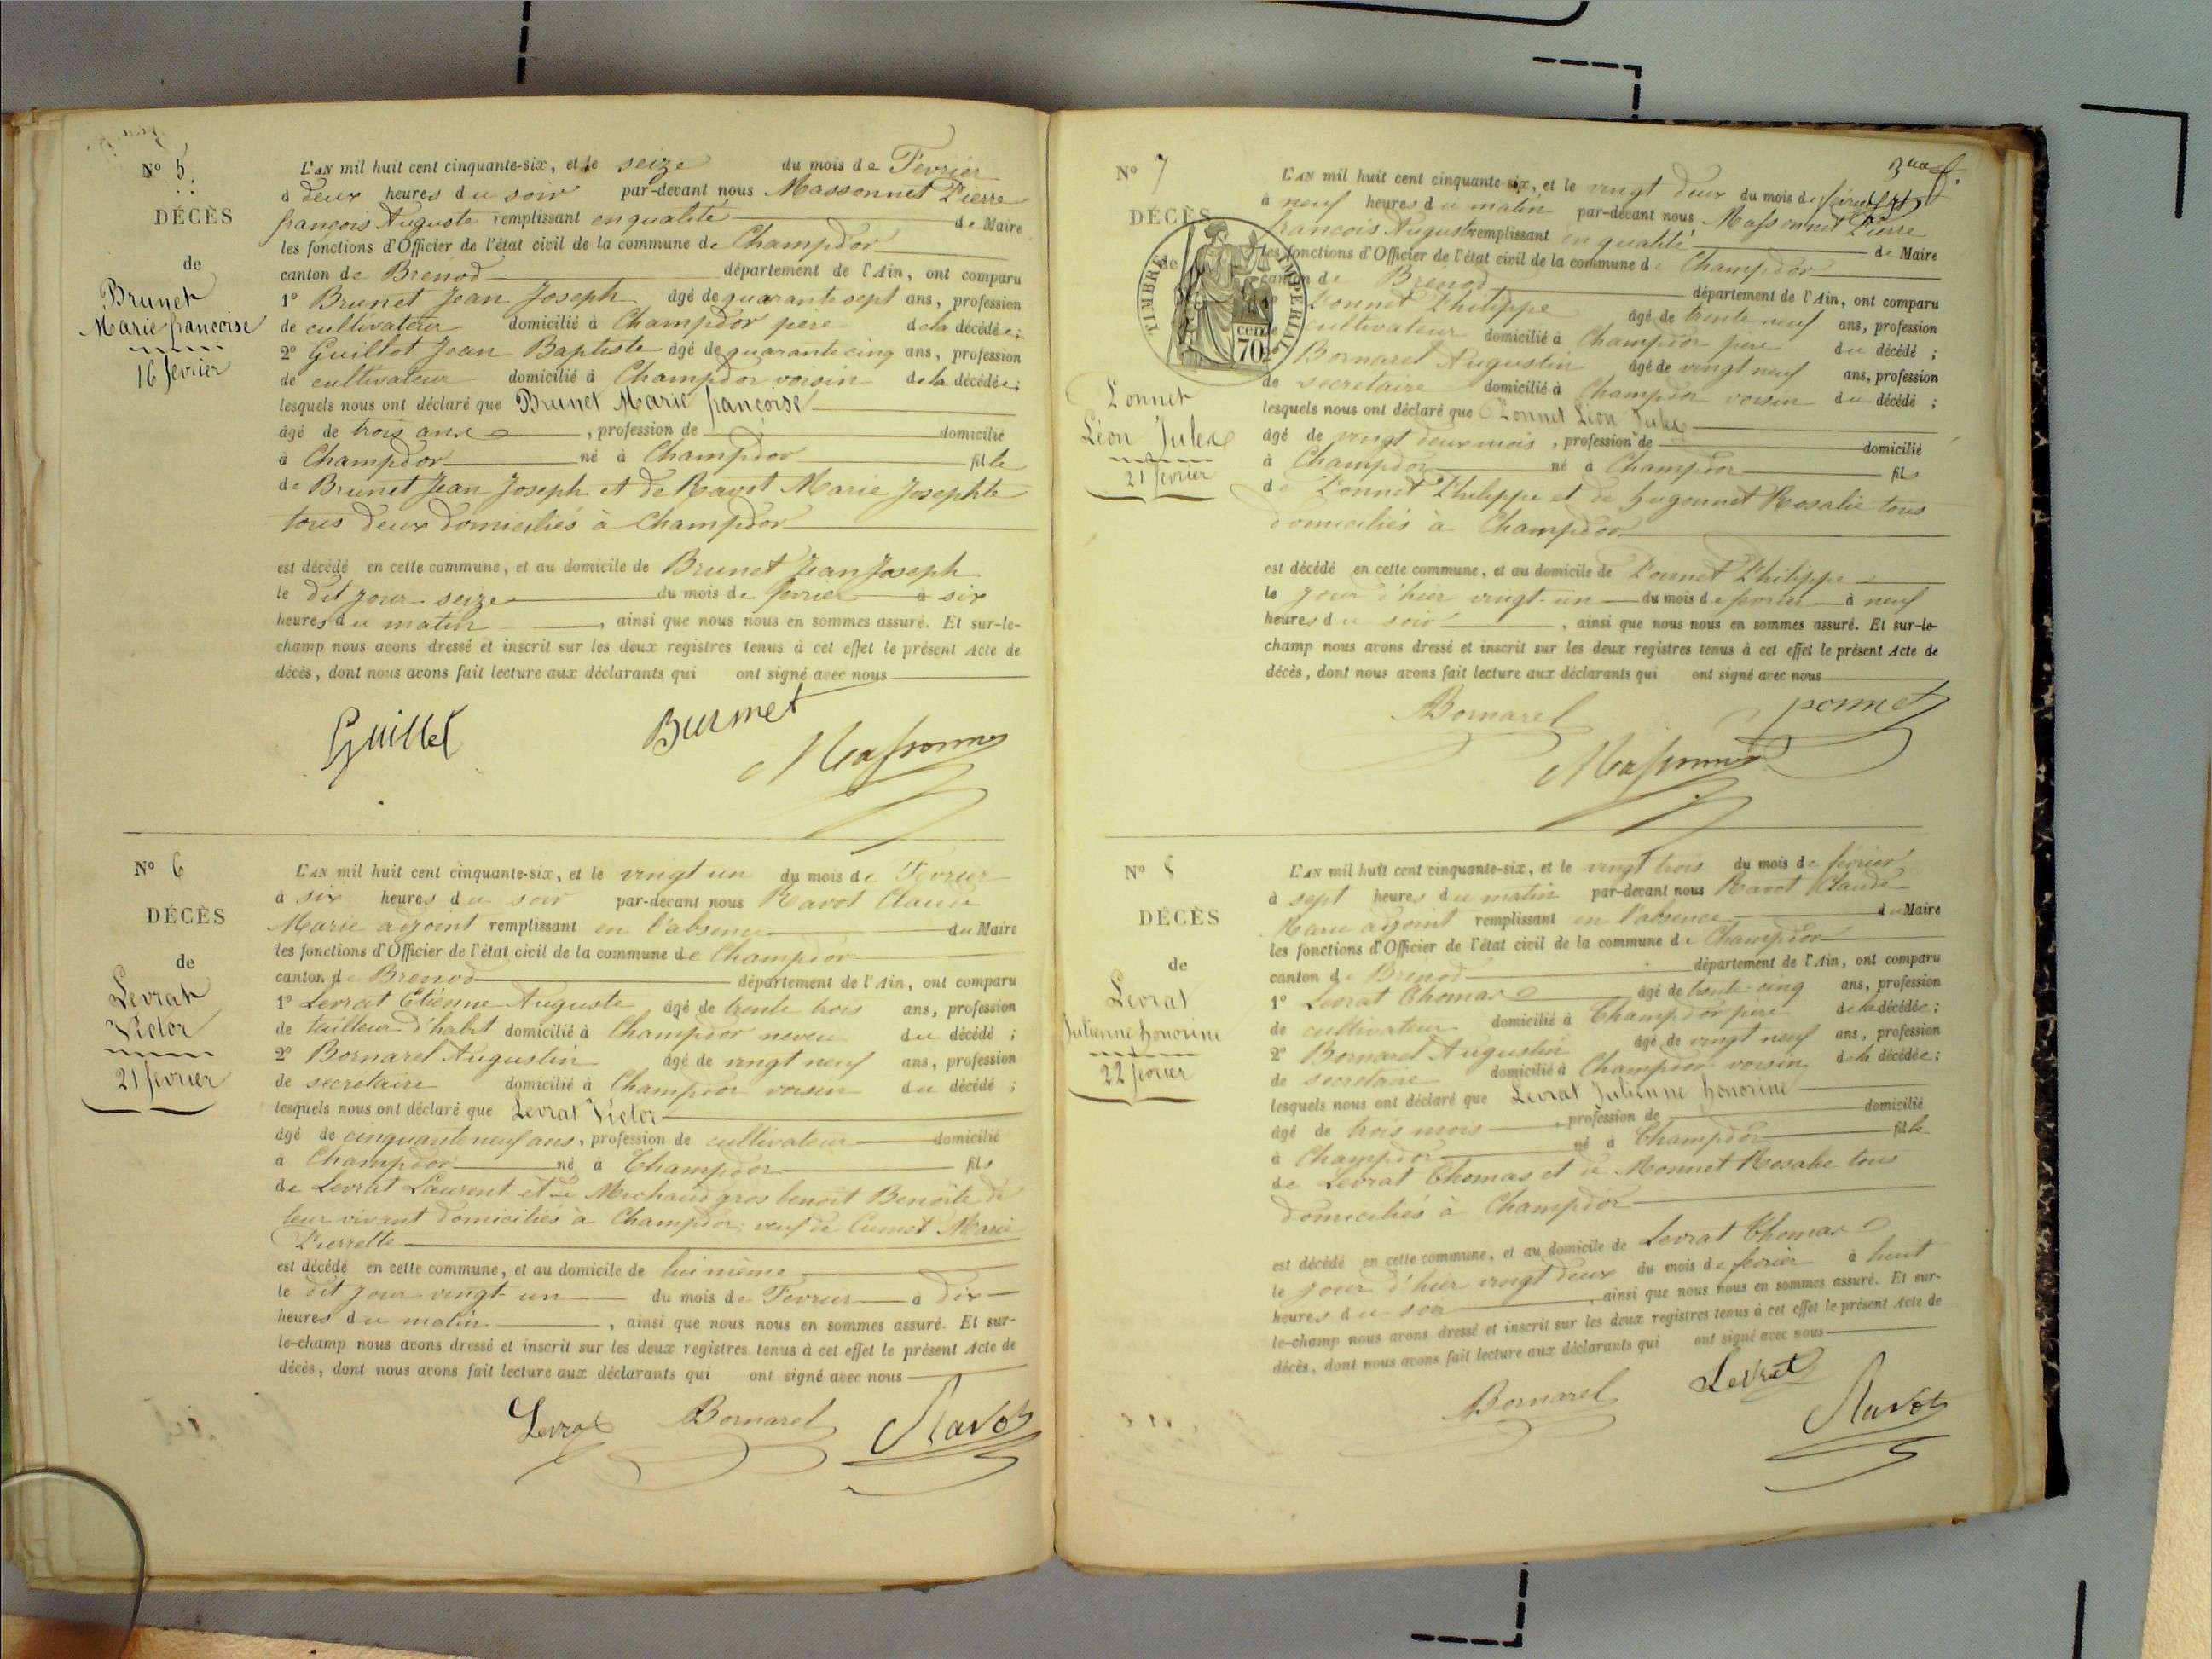 N° 5.
DÉCÈS
de
Brunet
Marie françoise
16 février
L'AN mil huit cent cinquante-six, et le seize du mois de Février
à deux heures du soir par-devant nous Massonnet Pierre
françois Auguste remplissant en qualité de Maire
les fonctions d'Officier de l'état civil de la commune de Champdor
canton de Brénod département de l'Ain, ont comparu
1° Brunet Jean Joseph âgé de quarante sept ans, profession
de cultivateur domicilié à Champdor père de la décédée;
2° Guillot Jean Baptiste âgé de quarante cinq ans, profession
de cultivateur domicilié à Champdor voisin de la décédée;
lesquels nous ont déclaré que Brunet Marie françoise
âgé de trois ans, profession de domicilié
à Champdor né à Champdor fille
de Brunet Jean Joseph et de Ravot Marie Josephte
tous deux domiciliés à Champdor
est décédé en cette commune, et au domicile de Brunet Jean Joseph
le dit jour seize du mois de février à six
heures du matin, ainsi que nous nous en sommes assuré. Et sur-le-
champ nous avons dressé et inscrit sur les deux registres tenus à cet effet le présent Acte de
décès, dont nous avons fait lecture aux déclarants qui ont signé avec nous
Guillot Burnet
Massonnet
N° 6
DÉCÈS
de
Levrat
Victor
21 février
L'AN mil huit cent cinquante-six, et le vingt un du mois de Février
à six heures du soir par-devant nous Ravot Claude
Marie adjoint remplissant en l'absence du Maire
les fonctions d'Officier de l'état civil de la commune de Champdor
canton de Brenod département de l'Ain, ont comparu
1° Levrat Etienne Auguste âgé de trente trois ans, profession
de tailleur d'habit domicilié à Champdor neveu du décédé;
2° Bornarel Augustin âgé de vingt neuf ans, profession
de secrétaire domicilié à Champdor voisin du décédé;
lesquels nous ont déclaré que Levrat Victor
âgé de cinquante neuf ans, profession de cultivateur domicilié
à Champdor né à Champdor fils
de Levrat Laurent et de Michaud gros benoit Benoîte de
leur vivant domiciliés à Champdor, veuf de Cumet Marie
Pierrette
est décédé en cette commune, et au domicile de lui même
le dit jour vingt un du mois de Février à dix
heures du matin, ainsi que nous nous en sommes assuré. Et sur-
le-champ nous avons dressé et inscrit sur les deux registres tenus à cet effet le présent Acte de
décès, dont nous avons fait lecture aux déclarants qui ont signé avec nous
Levrat Bornarel Ravot
N° 7
DÉCÈS
de
TIMBRE IMPERIAL
cent
70
Ponnet
Léon Jules
21 février
L'AN mil huit cent cinquante-six, et le vingt deux du mois de février
à neuf heures du matin par-devant nous Massonnet Pierre
françois Auguste remplissant en qualité de Maire
les fonctions d'Officier de l'état civil de la commune de Champdor
canton de Brénod département de l'Ain, ont comparu
1° Ponnet Philippe âgé de trente neuf ans, profession
de cultivateur domicilié à Champdor père du décédé;
2° Bornarel Augustin âgé de vingt neuf ans, profession
de secrétaire domicilié à Champdor voisin du décédé;
lesquels nous ont déclaré que Ponnet Léon Jules
âgé de vingt deux mois, profession de domicilié
à Champdor né à Champdor fils
de Ponnet Philippe et de hugonnet Rosalie tous
domiciliés à Champdor
est décédé en cette commune, et au domicile de Ponnet Philippe
le jour d'hier vingt-un du mois de février à neuf
heures du soir, ainsi que nous nous en sommes assuré. Et sur-le-
champ nous avons dressé et inscrit sur les deux registres tenus à cet effet le présent Acte de
décès, dont nous avons fait lecture aux déclarants qui ont signé avec nous
Bornarel ponnet
Massonnet
N° 8
DÉCÈS
de
Levrat
Julienne honorine
22 février
L'AN mil huit cent cinquante-six, et le vingt trois du mois de février
à sept heures du matin par-devant nous Ravot Claude
Marie adjoint remplissant en l'absence du Maire
les fonctions d'Officier de l'état civil de la commune de Champdor
canton de Brenod département de l'Ain, ont comparu
1° Levrat Thomas âgé de trente cinq ans, profession
de cultivateur domicilié à Champdor père de la décédée;
2° Bornarel Augustin âgé de vingt neuf ans, profession
de secrétaire domicilié à Champdor voisin de la décédée;
lesquels nous ont déclaré que Levrat Julienne honorine
âgé de trois mois, profession de domicilié
à Champdor né à Champdor fille
de Levrat Thomas et de Monnet Rosalie tous
domiciliés à Champdor
est décédé en cette commune, et au domicile de Levrat Thomas
le jour d'hier vingt deux du mois de février à huit
heures du soir, ainsi que nous nous en sommes assuré. Et sur-
le-champ nous avons dressé et inscrit sur les deux registres tenus à cet effet le présent Acte de
décès, dont nous avons fait lecture aux déclarants qui ont signé avec nous
Bornarel Levrat
Ravot